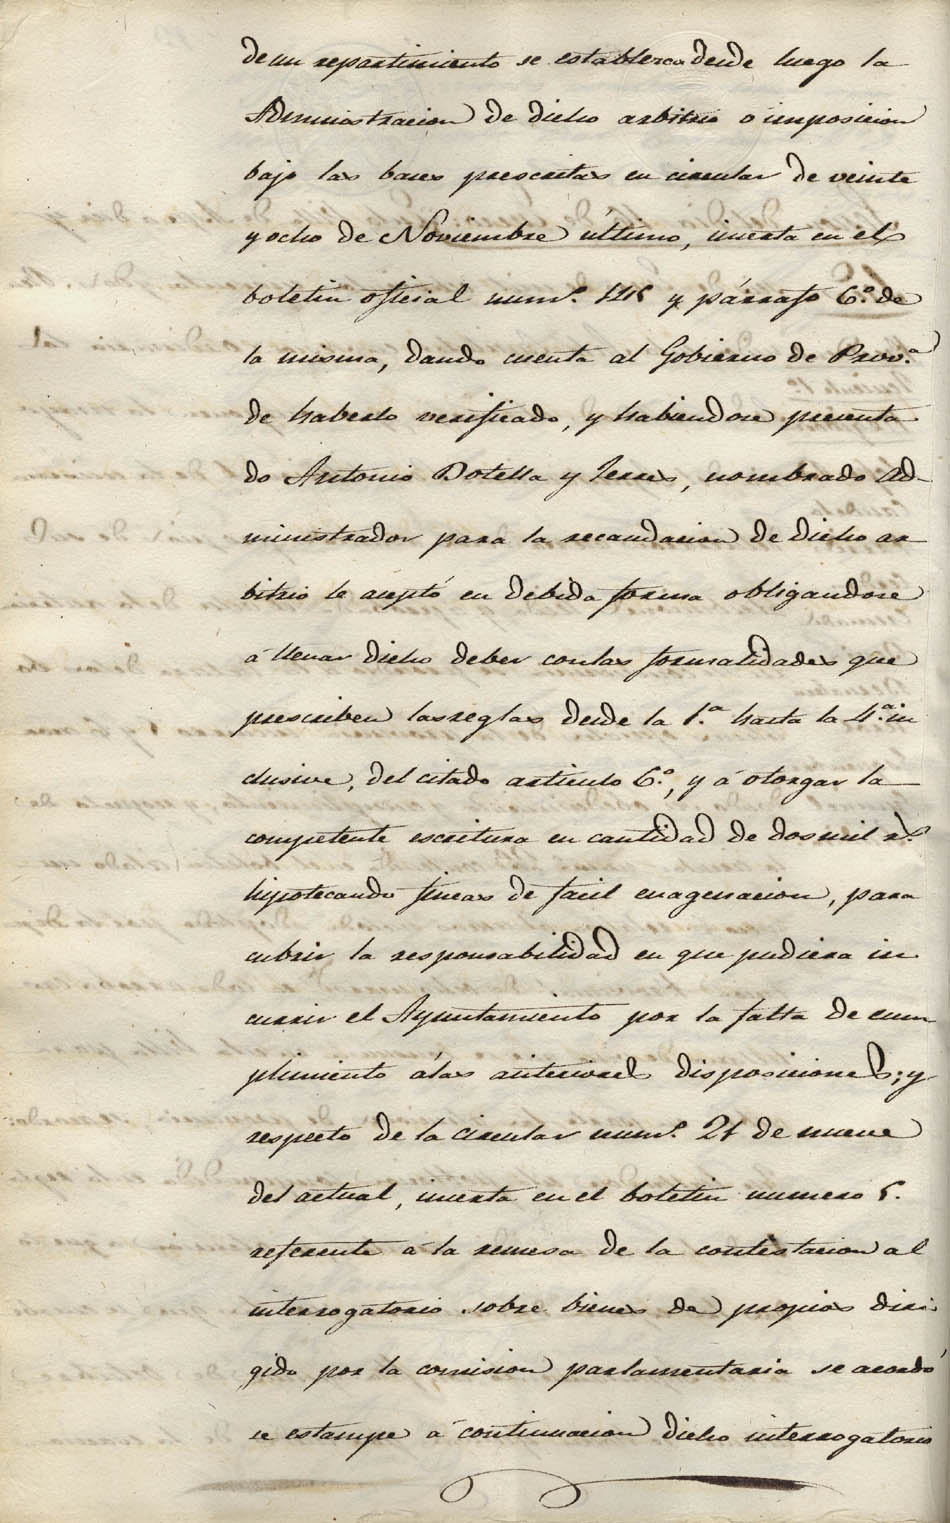 de un repartimiento se establezca desde luego la
Administracion de dicho arbitrio o imposicion
bajo las bases prescritas en circular de veinte
y ocho de Noviembre último, inserta en el
boletin oficial num.º 145 y párrafo 6.º de
la misma, dando cuenta al Gobierno de Prov.ª
de haberlo verificado, y habiendose presenta
do Antonio Botella y Terres, nombrado Ad-
ministrador para la recaudacion de dicho ar
bitrio le aceptó en debida forma obligandose
á llenar dicho deber con las formalidades que
prescriben las reglas desde la 1.ª hasta la 4.ª in
clusive, del citado articulo 6.º, y á otorgar la
competente escritura en cantidad de dos mil r.s
hipotecando fincas de facil enagenacion, para
cubrir la responsabilidad en que pudiera in
currir el Ayuntamiento por la falta de cum
plimiento á las anteriores disposiciones; y
respecto de la circular num.º 21 de nueve
del actual, inserta en el boletin numero 5.
referente á la remesa de la contestacion al
interrogatorio sobre bienes de propios diri
gido por la comision parlamentaria se acordó
se estampe á continuacion dicho interrogatorio